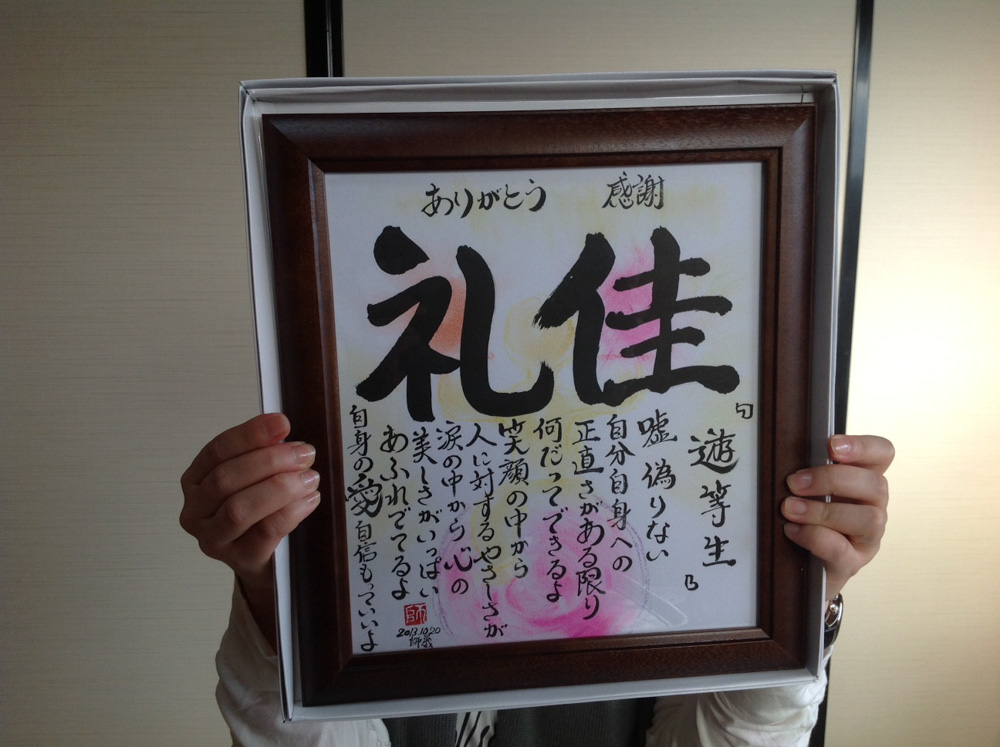 ありがとう 感謝
佳礼
『遊等生』
嘘偽りない
自分自身への
正直さがある限り
何だってできるよ
笑顔の中から
人に対するやさしさが
涙の中から心の
美しさがいっぱい
あふれでてるよ
自身の愛自信もっていいよ
師
2013.10.20